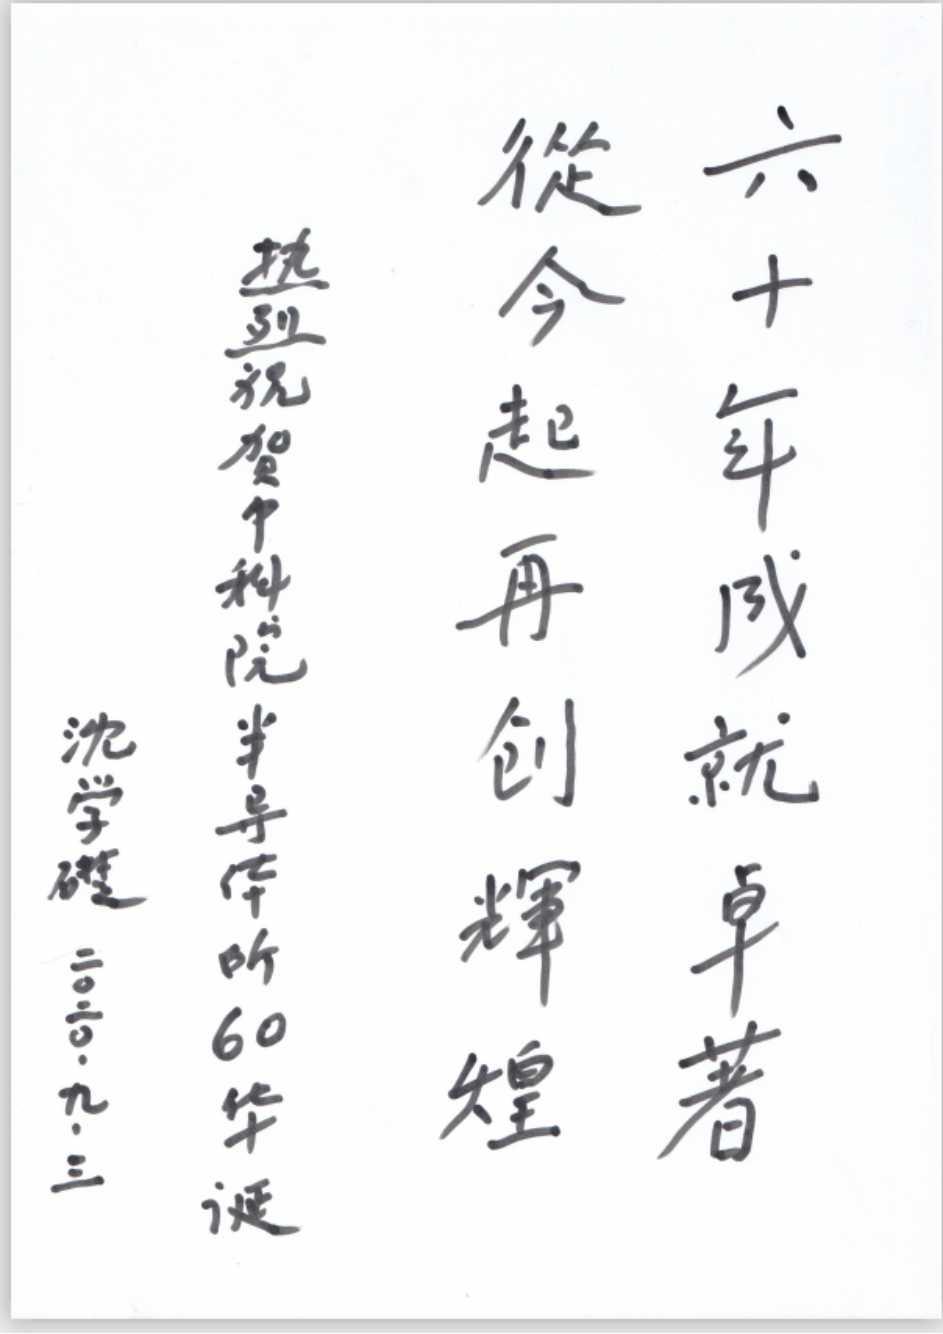 六十年成就卓著
從今起再创輝煌
热烈祝贺中科院半导体所60华诞
沈学礎 二〇二〇·九·三